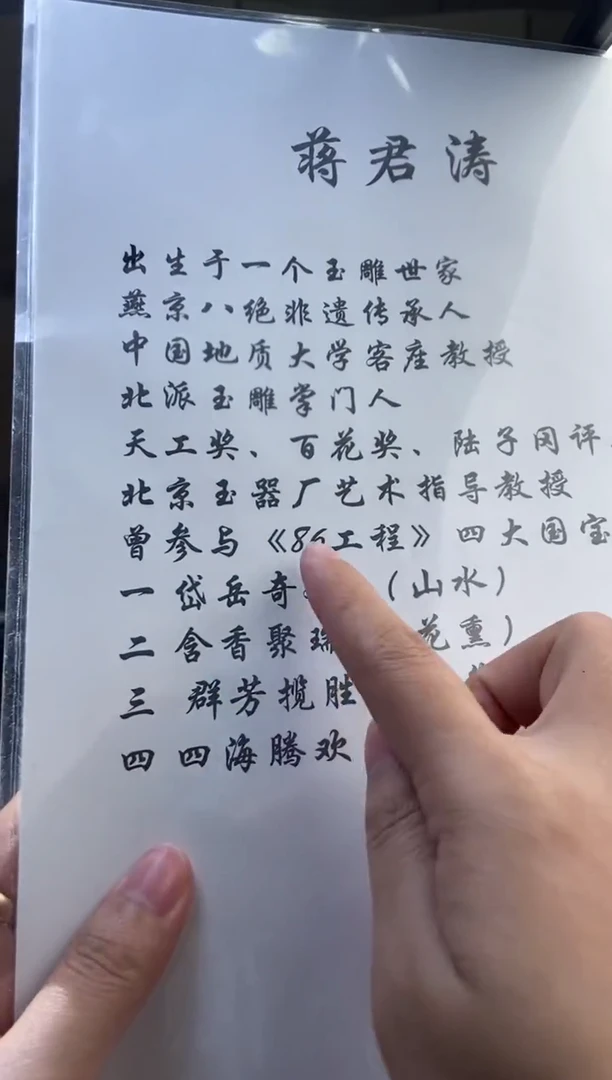 蒋君涛
出生于一个玉雕世家
燕京八绝非遗传承人
中国地质大学客座教授
北派玉雕掌门人
天工奖、百花奖、陆子冈评
北京玉器厂艺术指导教授
曾参与《86工程》四大国宝
一 岱岳奇 (山水)
二 含香聚瑞 花熏)
三 群芳揽胜
四 四海腾欢